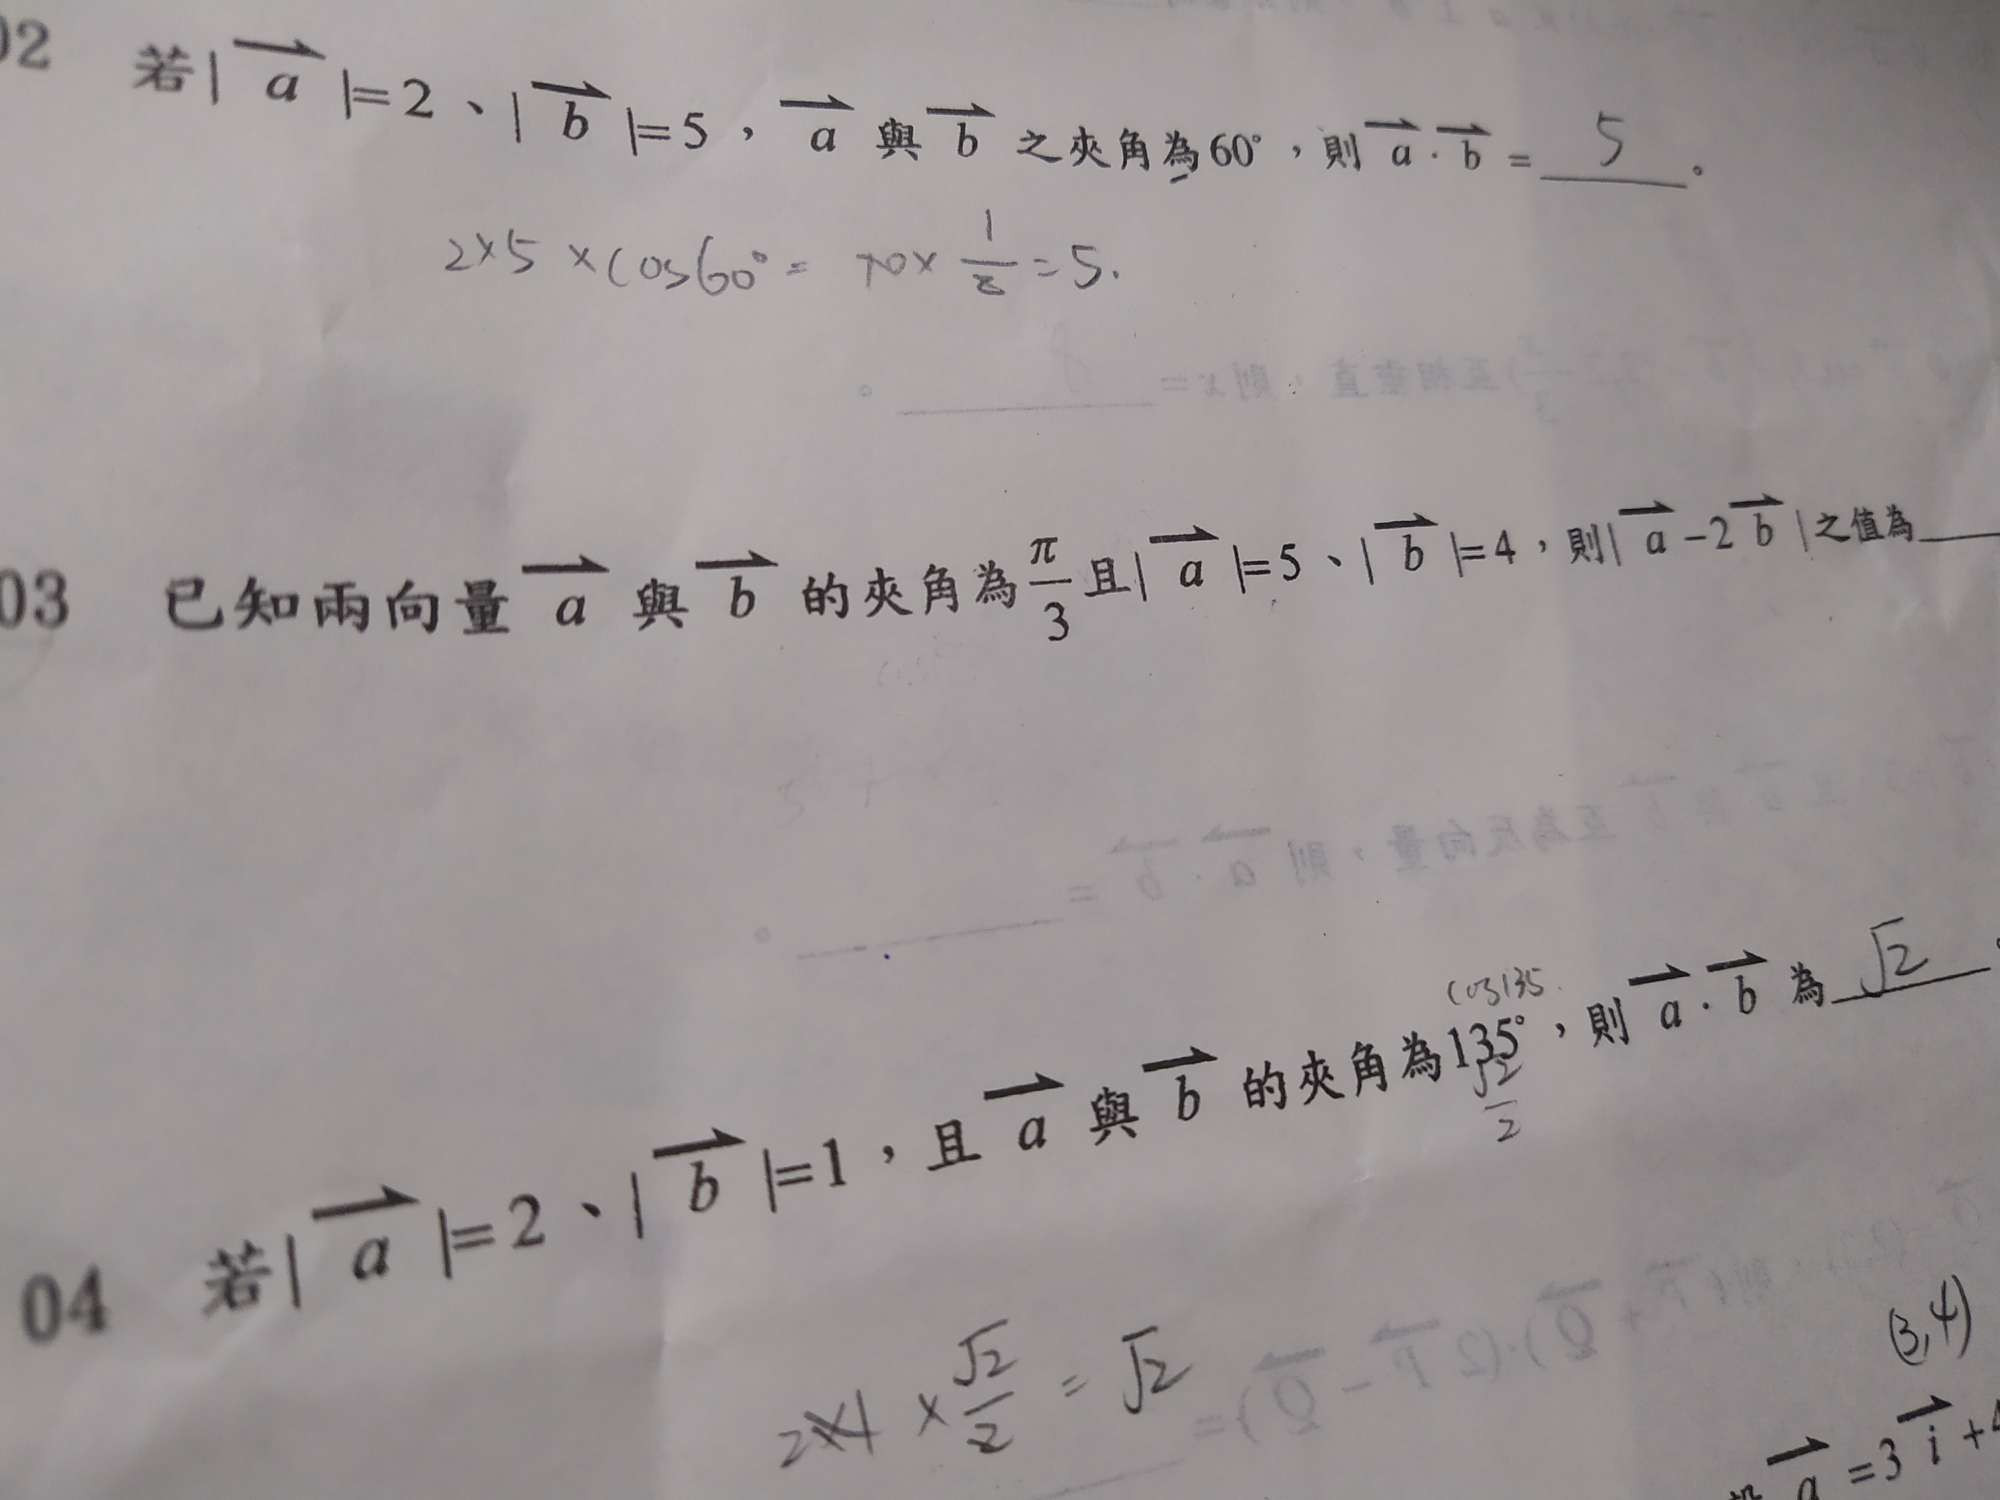 02 若|a|=2、|b|=5，a與b之夾角為60°，則a·b= 5 。
2×5×cos60°= 10× 1/2 =5.
03 已知兩向量a與b的夾角為π/3且|a|=5、|b|=4，則|a-2b|之值為
cos135
04 若|a|=2、|b|=1，且a與b的夾角為135°，則a·b為 √2 。
√2/2
2×1×√2/2=√2
(3,4)
a=3i+4